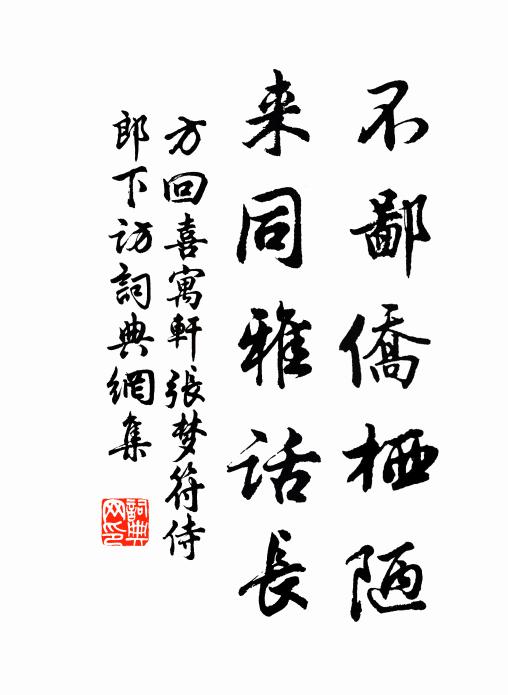 不鄙僑栖陋
来同雅话長
方回喜寓軒張梦符侍
郎下访詞典網集
詞典
网印